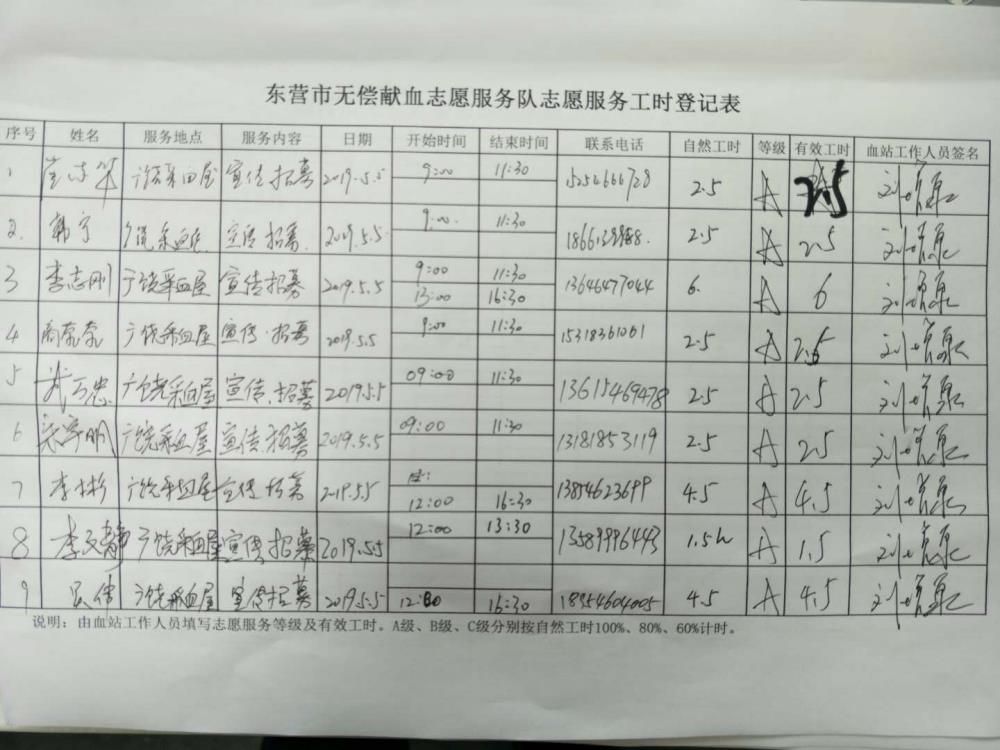 东营市无偿献血志愿服务队志愿服务工时登记表
序号 姓名 服务地点 服务内容 日期 开始时间 结束时间 联系电话 自然工时 等级 有效工时 血站工作人员签名
1 广饶采血屋 宣传招募 2019.5.5 9:00 11:30 2.5 A 2.5
2. 韩宁 广饶采血屋 宣传招募 2019.5.5. 9:00. 11:30 2.5 A 2.5
3 李志刚 广饶采血屋 宣传招募 2019.5.5 9:00 11:30 13646477044 6. A 6
13:00 16:30
4 广饶采血屋 宣传·招募 2019.5.5 9:00 11:30 15318361061 2.5 A 2.5
5 武万忠 广饶采血屋 宣传.招募 2019.5.5 09:00 11:30 13615469478 2.5 A 2.5
6 广饶采血屋 宣传.招募 2019.5.5 09:00 11:30 13181853119 2.5 A 2.5
7 李彬彬 广饶采血屋 宣传招募 2019.5.5 12:00 16:30 13854623699 4.5 A 4.5
8 李文静 广饶采血屋 宣传招募 2019.5.5 12:00 13:30 13589996443 1.5h A 1.5
9 广饶采血屋 宣传招募 2019.5.5 12:00 16:30 18954604005 4.5 A 4.5
说明：由血站工作人员填写志愿服务等级及有效工时。A级、B级、C级分别按自然工时100%、80%、60%计时。